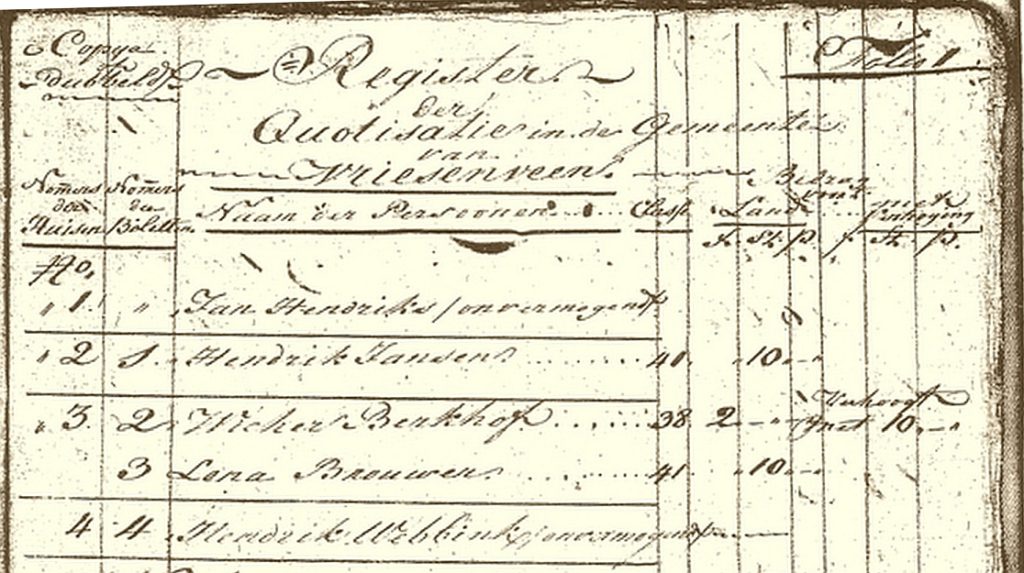 Copya
dubbeld
Register
Folio 1
der
Quotisatie in de Gemeente
van
Vriesenveen
Nomers Nomers
der der
Huisen Boletten
Naam der Persoonen Classe
Bedrag
Land
met
verhoging
f. St. p. f. St. p.
No.
" 1. " Jan Hendriks / onvermogend
" 2 1 Hendrik Jansen 41 " 10 " - "
" 3. 2 Wicher Berkhof 38 2 - " Verhoogt
met 10 " - "
3 Lona Brouwer 41 " 10 " - "
4 4 Hendrik Webbink / onvermogend